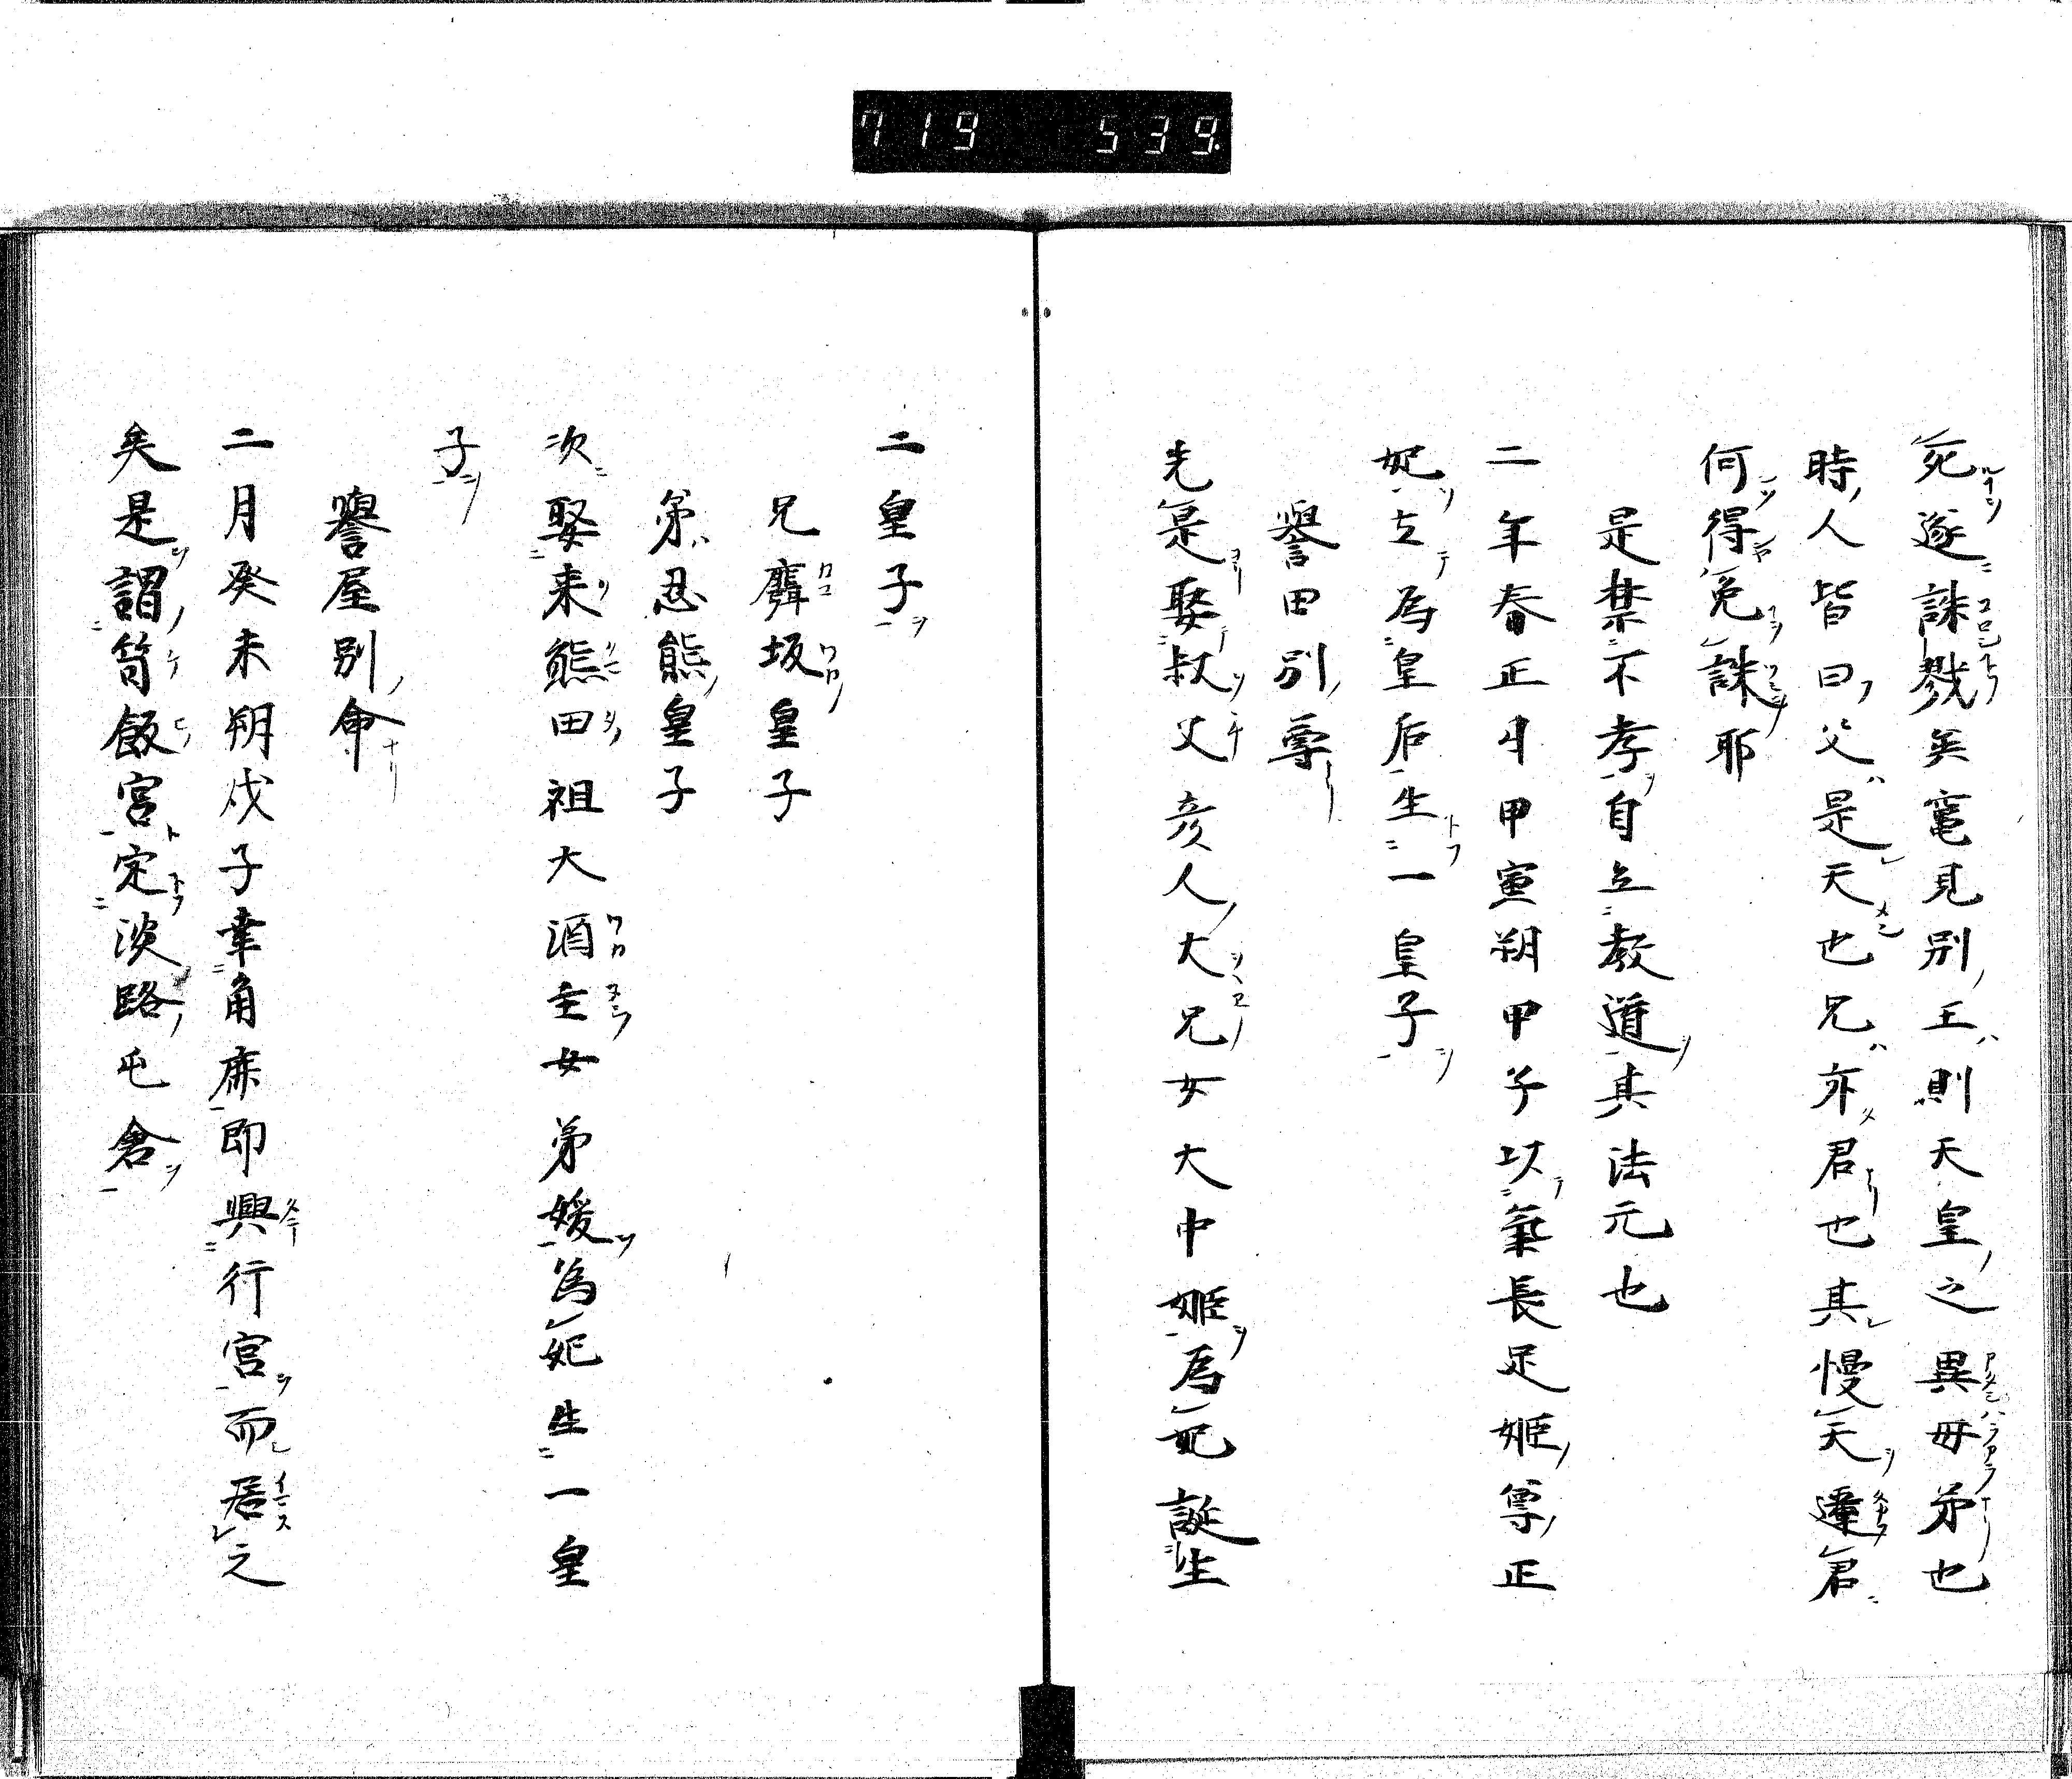 719 539.
死遂誅戮矣竃見別王則天皇之異母弟也
時人皆曰父是天也兄亦君也其慢天違君
何得免誅耶
是禁不孝自立教道其法元也
二年春正月甲寅朔甲子以氣長足姫尊正
妃立為皇后生一皇子
譽田別尊
先是娶叔父彦人大兄女大中姫為妃誕生
二皇子
兄麛坂皇子
弟忍熊皇子
次娶来熊田祖大酒主女弟媛為妃生一皇
子
譽屋別命
二月癸未朔戊子幸角鹿即興行宮而居之
矣是謂笥飯宮定淡路屯倉